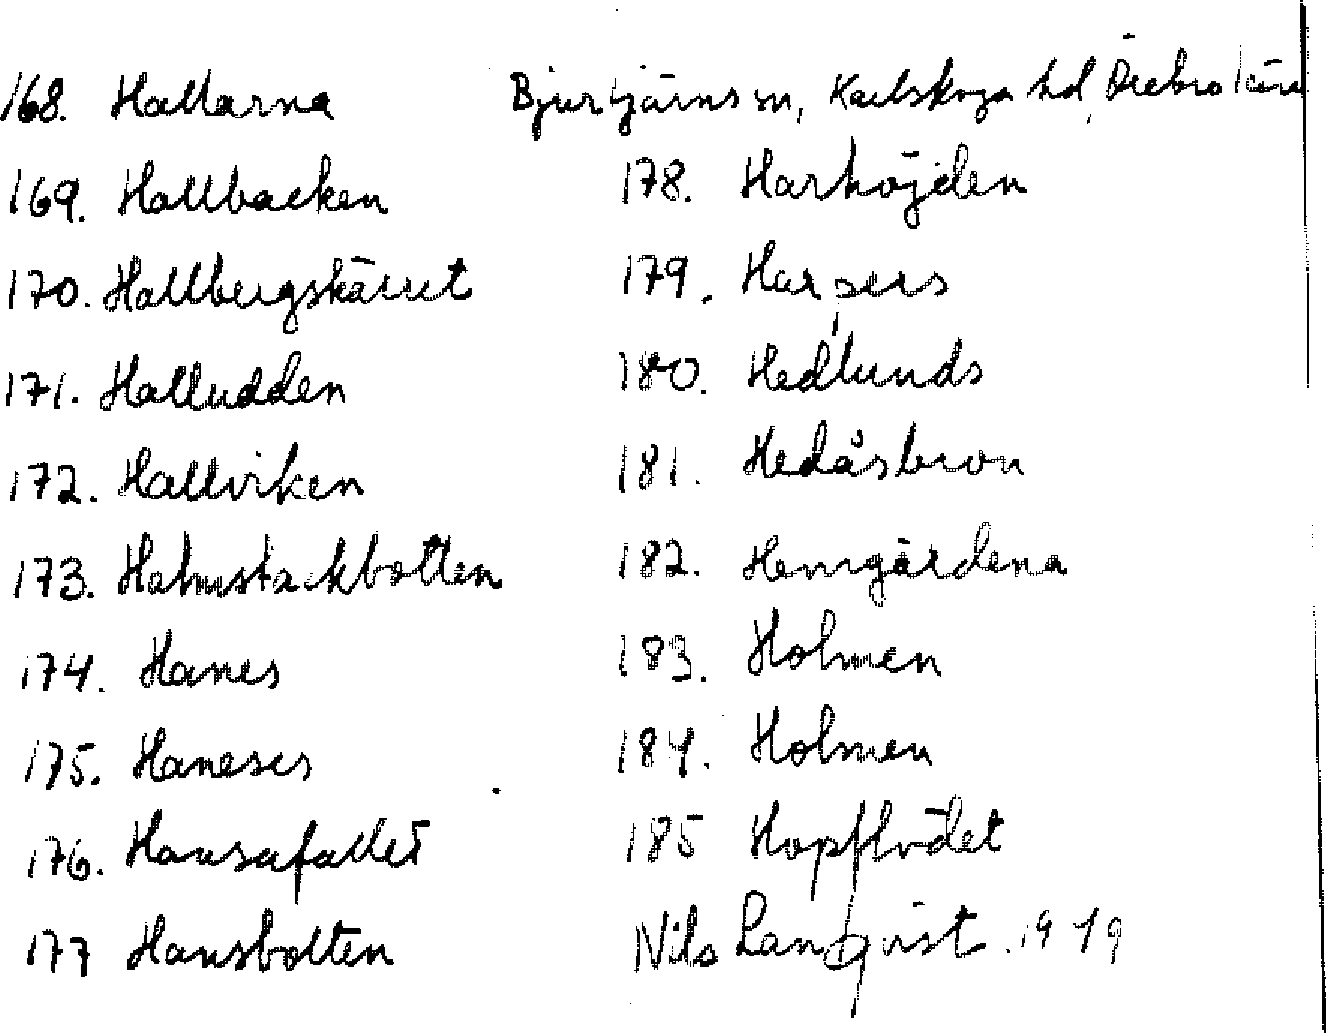 Bjurtjärns sn, Karlskoga hd, Örebro län
168. Hallarna
169. Hallbacken
170. Hallbergskärret
171. Halludden
172. Hallviken
173. Halmstackbotten
174. Hanes
175. Haneses
176. Hansafallet
177 Hansbotten
178. Harhöjden
179. Harpers
180. Hedlunds
181. Hedåsbron
182. Hemgärdena
183. Holmen
184. Holmen
185 Hopflödet
Nils 1979